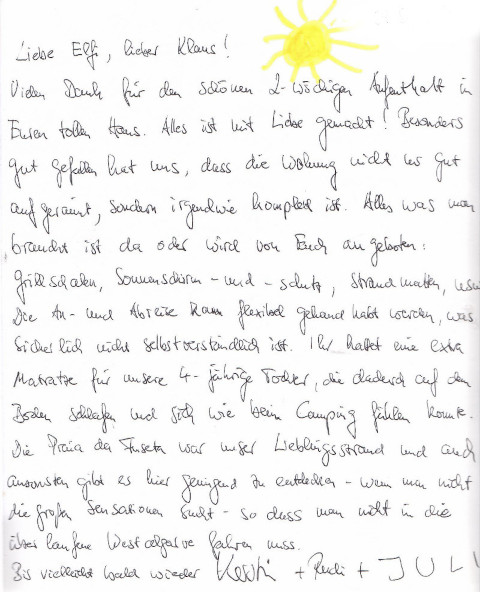 Liebe Elfi, lieber Klaus!
Vielen Dank für den schönen 2-wöchigen Aufenthalt in
Euren tollen Haus. Alles ist mit Liebe gemacht! Besonders
gut gefallen hat uns, dass die Wohnung nicht nur gut
aufgeräumt, sondern irgendwie komplett ist. Alles was man
braucht ist da oder wird von Euch angeboten:
Grillschalen, Sonnenschirm - und - schutz, Strandmatten, usw
Die An- und Abreise kann flexibel gehandhabt werden, was
sicherlich nicht selbstverständlich ist. Ihr hattet eine extra
Matratze für unsere 4-jährige Tochter, die dadurch auf dem
Boden schlafen und sich wie beim Camping fühlen konnte.
Die Praia da Fuseta war unser Lieblingsstrand und auch
ansonsten gibt es hier genügend zu entdecken - wenn man nicht
die großen Sensationen sucht - so dass man nicht in die
überlaufene Westalgarve fahren muss.
Bis vielleicht bald wieder Kerstin + Rudi + JULI